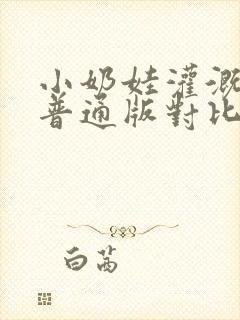 小奶娃灌溉
普通版對比
白茜